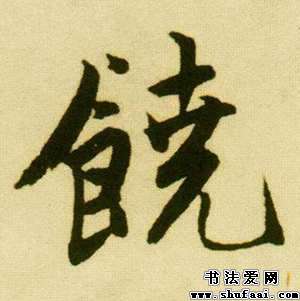 饒
书法爱网
www.shufaai.com